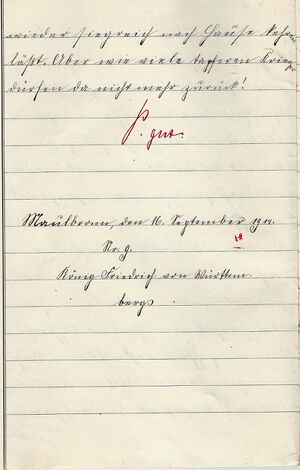 wieder siegreich nach Hause kehren
läßt. Aber wie viele tapferen Krieger
dürfen da nicht mehr zurück!
gut.
Maulbronn, den 16. September 1914.
Nr. 9.
König Friedrich von Württem-
bergs